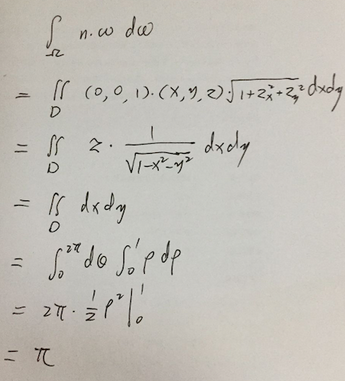 ∫_Ω n·ω dω
= ∬_D (0, 0, 1)·(x, y, z)·√(1+z_x²+z_y²) dxdy
= ∬_D z · 1/√(1-x²-y²) dxdy
= ∬_D dxdy
= ∫₀^{2π} dθ ∫₀¹ ρ dρ
= 2π · ½ ρ² |₀¹
= π